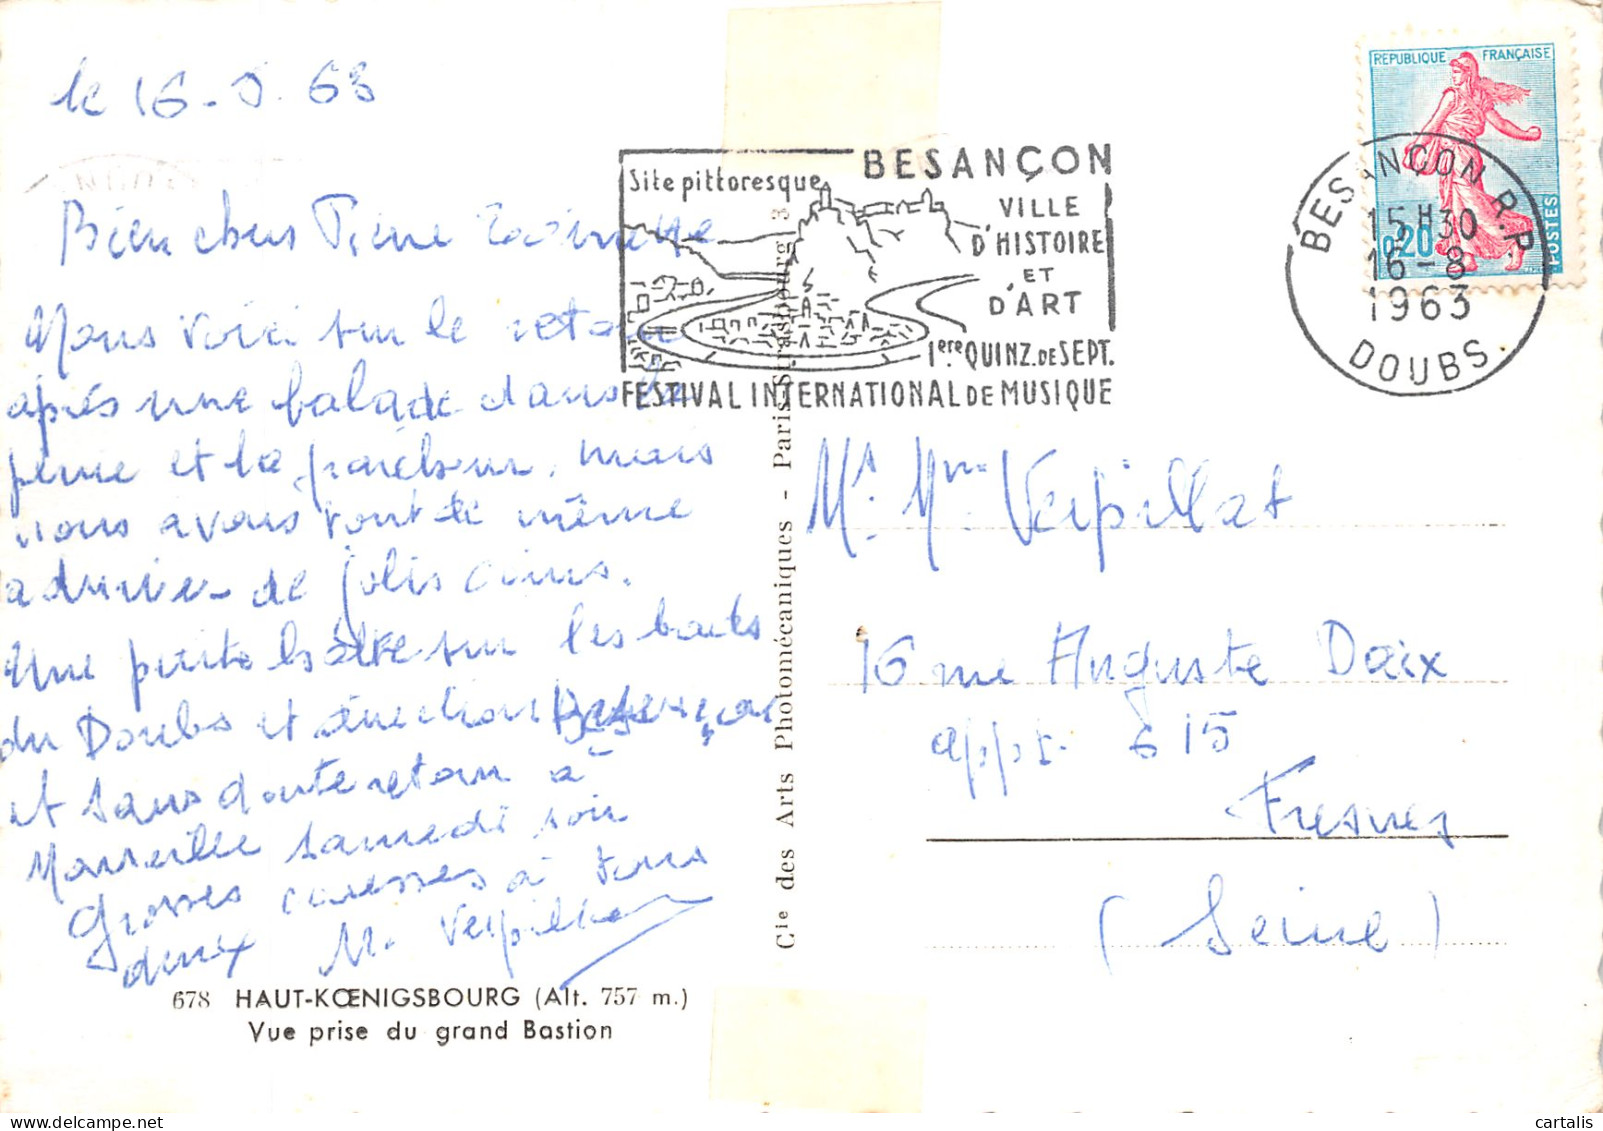 le 16-8.63
Bien chers Pierre
Nous voici sur le retour
après une balade dans la
pluie et la fraicheur, mais
nous avons tout de même
admirer de jolis coins.
Une petite halte sur les bords
du Doubs et direction Besançon
et sans doute retour à
Marseille samedi soir
Grosses caresses à tous
deux M. Verpillat
678 HAUT-KŒNIGSBOURG (Alt. 757 m.)
Vue prise du grand Bastion
Cie des Arts Photomécaniques - Paris-Strasbourg 3
Site pittoresque
BESANÇON
VILLE
D'HISTOIRE
ET
D'ART
1ere QUINZ. DE SEPT.
FESTIVAL INTERNATIONAL DE MUSIQUE
REPUBLIQUE FRANÇAISE
0,20
POSTES
BESANÇON R.P.
15H30
16-8
1963
DOUBS
Mr. Mme Verpillat
16 rue Auguste Daix
appt. 615
Fresnes
(Seine)
cartalis
www.delcampe.net